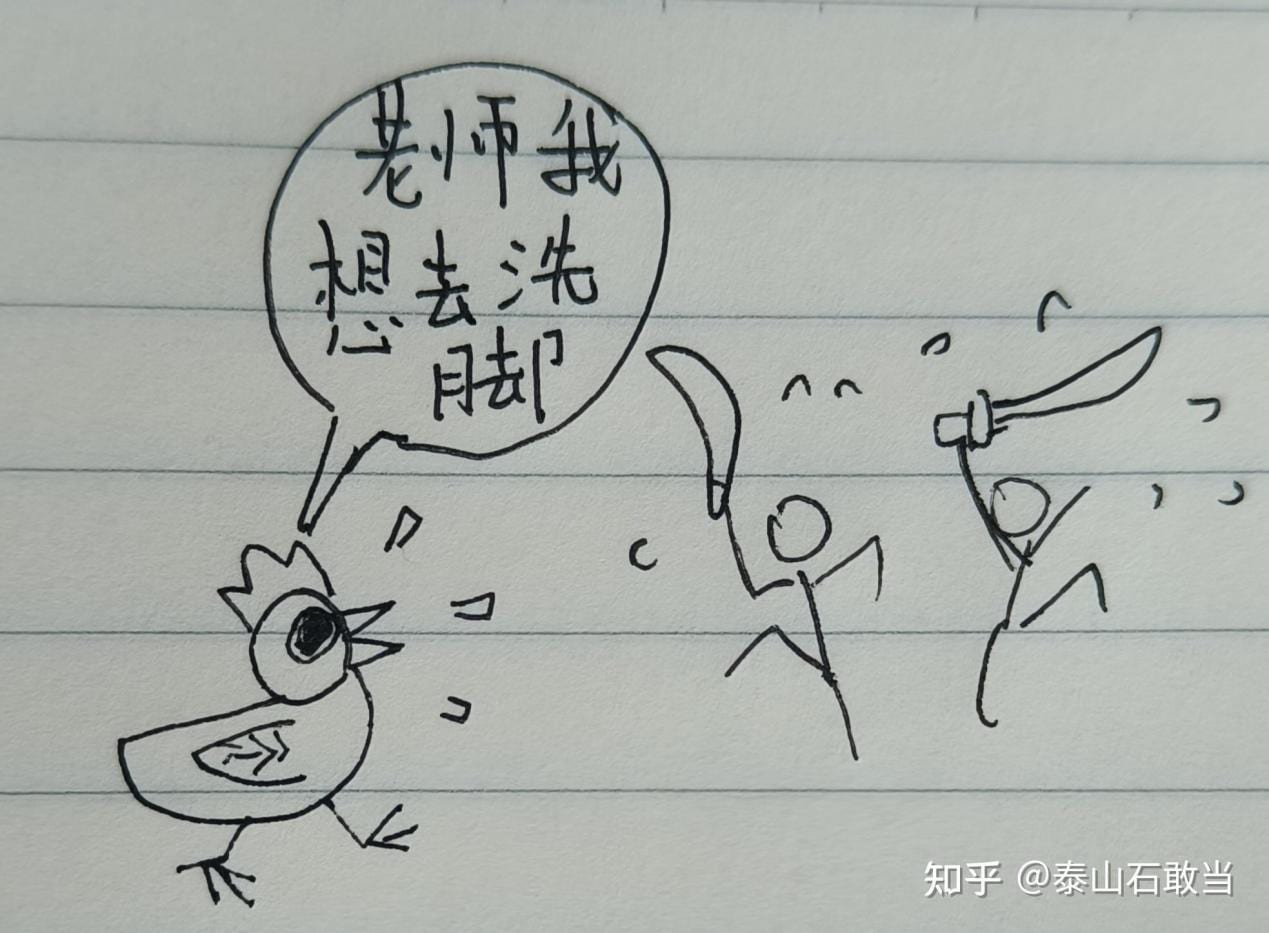 老师我
想去洗
脚
知乎 @泰山石敢当